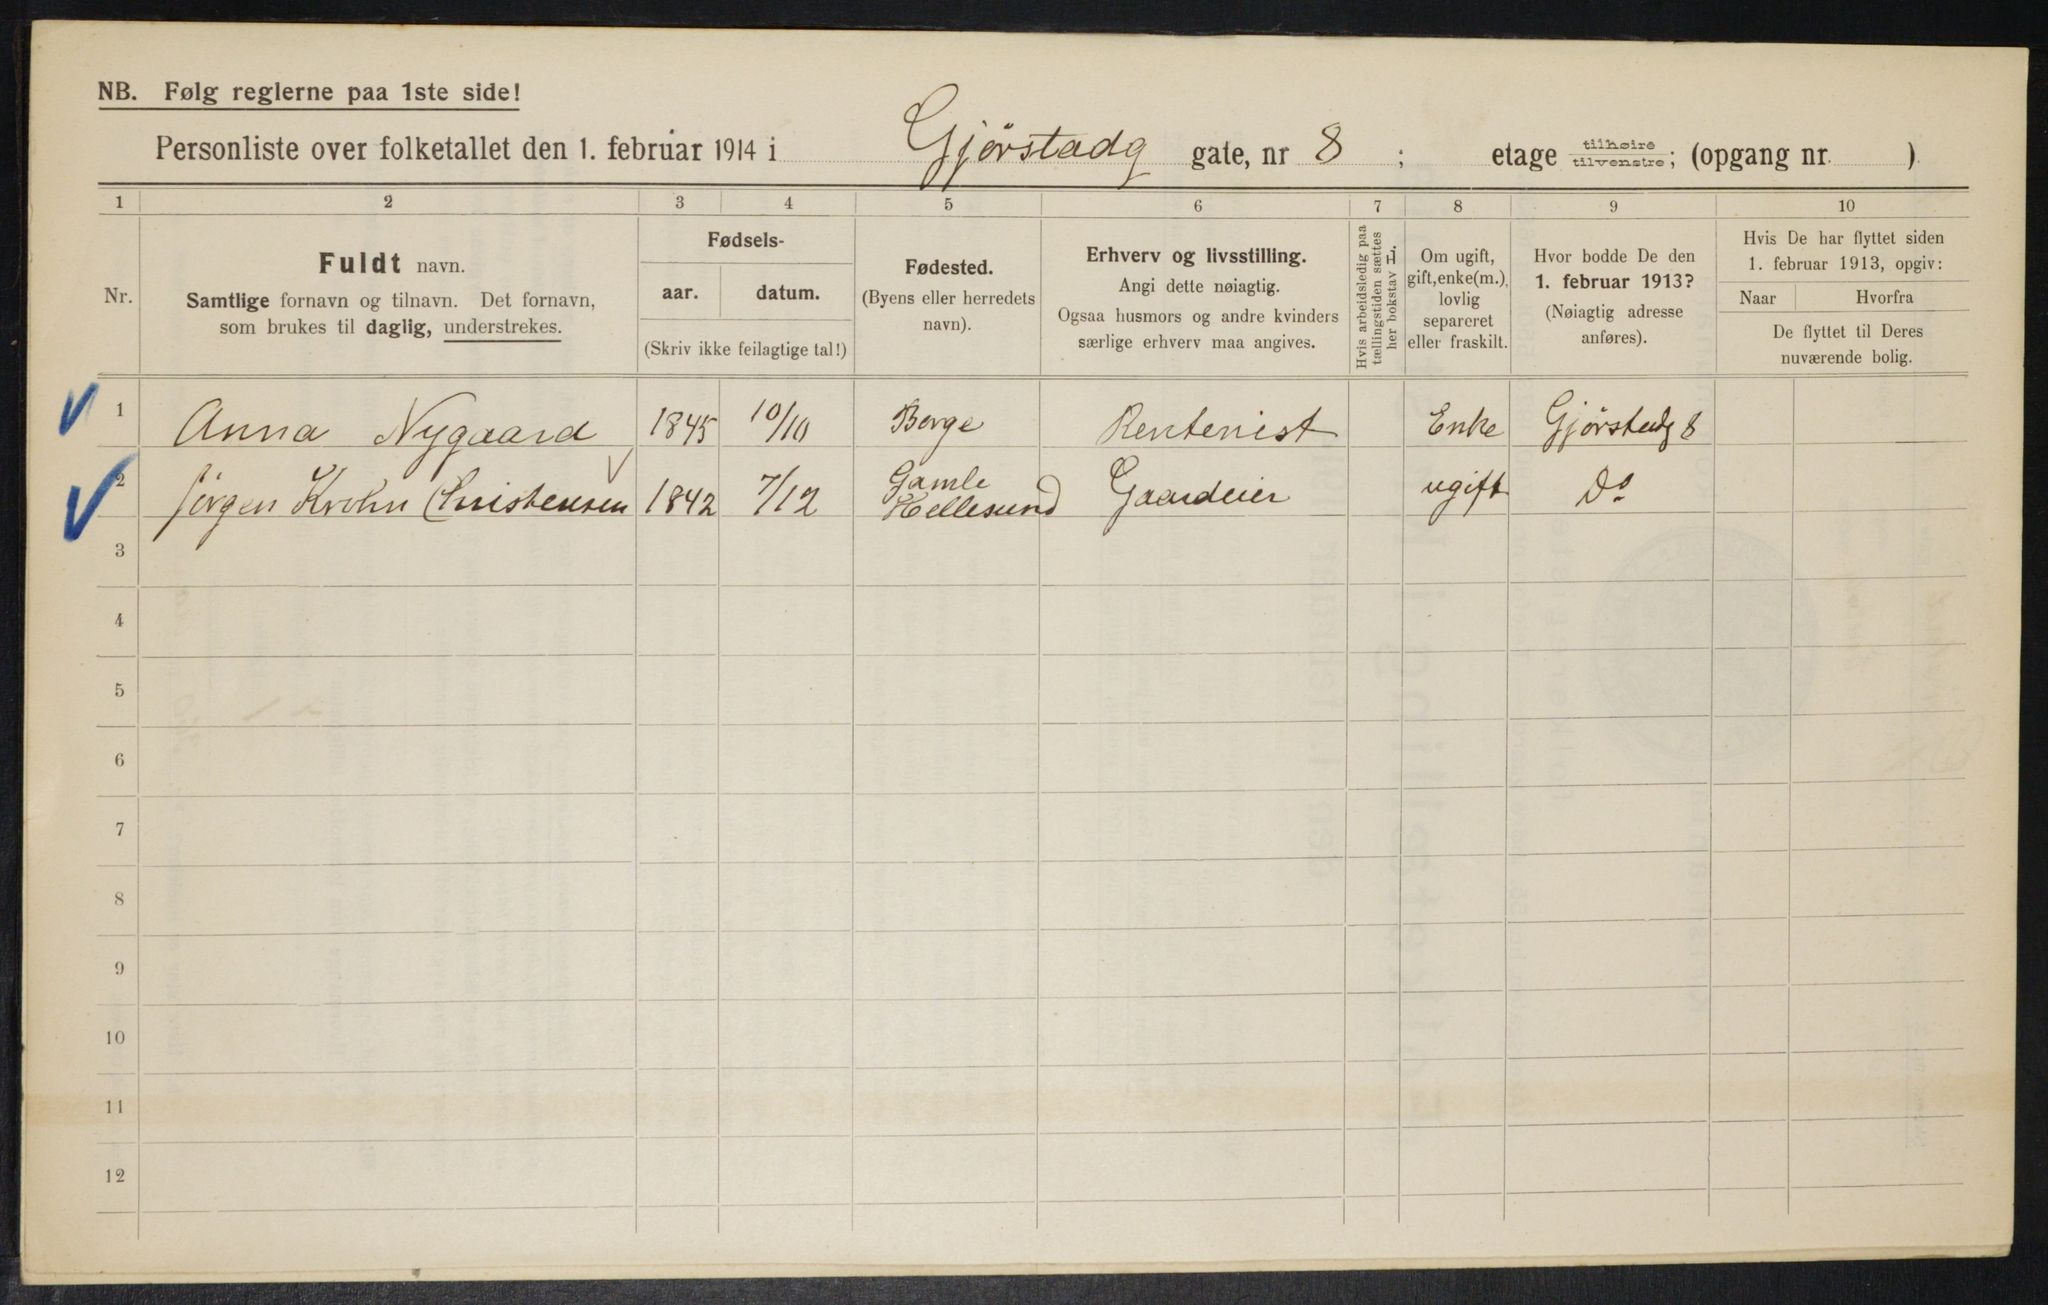 NB. Følg reglerne paa 1ste side!
Personliste over folketallet den 1. februar 1914 i Gjörstadg gate, nr 8 ; etage tilhøire tilvenstre; (opgang nr. )
1 2 3 4 5 6 7 8 9 10
Nr.
Fuldt navn.
Samtlige fornavn og tilnavn. Det fornavn,
som brukes til daglig, understrekes.
Fødsels-
aar. datum.
(Skriv ikke feilagtige tal!)
Fødested.
(Byens eller herredets
navn).
Erhverv og livsstilling.
Angi dette nøiagtig.
Ogsaa husmors og andre kvinders
særlige erhverv maa angives.
Hvis arbeidsledig paa
tællingstiden sættes
her bokstav L.
Om ugift,
gift, enke(m.),
lovlig
separeret
eller fraskilt.
Hvor bodde De den
1. februar 1913?
(Nøiagtig adresse
anføres).
Hvis De har flyttet siden
1. februar 1913, opgiv:
Naar Hvorfra
De flyttet til Deres
nuværende bolig.
1 Anna Nygaard 1845 10/10 Borge Rentenist Enke Gjörstadg 8
2 Jörgen Krohn Christensen 1842 7/12 Gamle Hellesund Gaardeier ugift Do
3
4
5
6
7
8
9
10
11
12